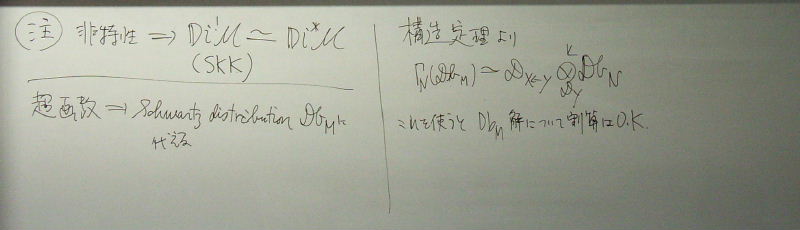 注 非特性 ⇒ Di!M ≃ Di*M
(SKK)
超函数 ⇒ Schwartz distribution DbM に
代える
構造定理より
ΓN(DbM) ≃ DX←Y ⊗ DbN
DY
これを使うと DbM 解について 割算は O.K.